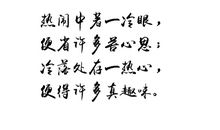 热闹中着一冷眼，
便省许多苦心思；
冷落处存一热心，
便得许多真趣味。